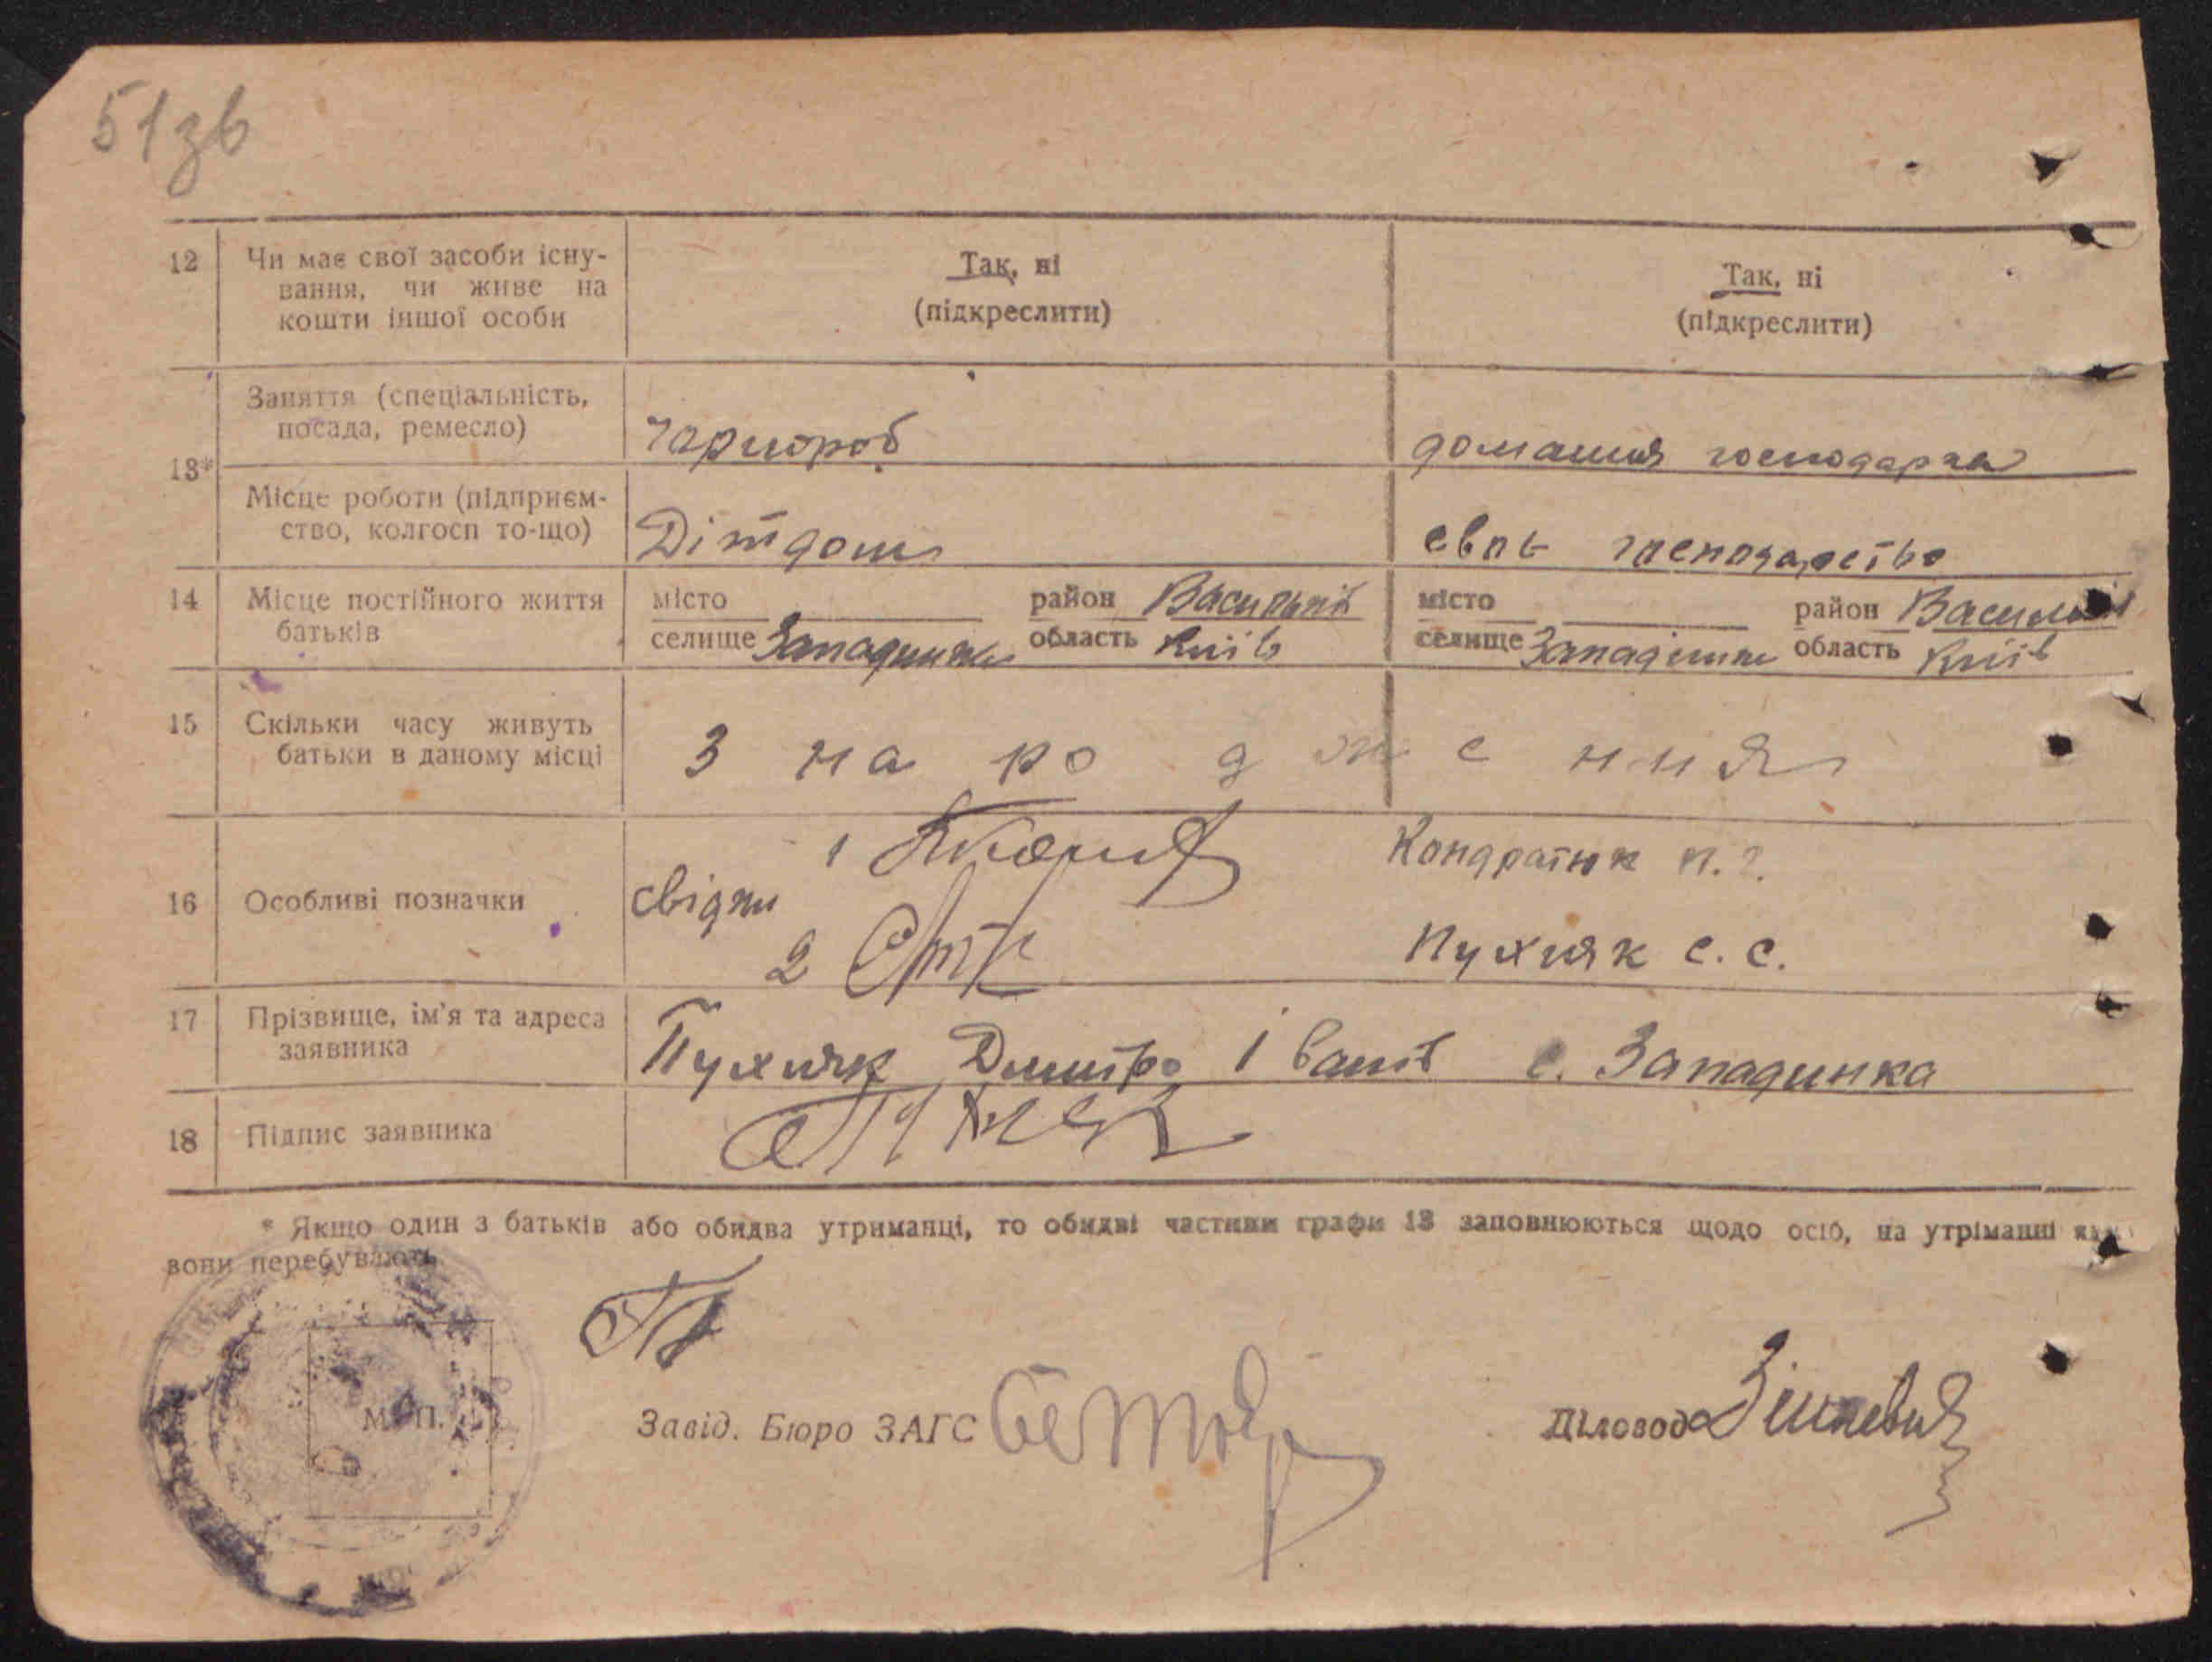 51зв
12 Чи має свої засоби існу-
вання, чи живе на
кошти іншої особи
Так, ні
(підкреслити)
Так, ні
(підкреслити)
13*
Заняття (спеціальність,
посада, ремесло)
чорнороб
домашня господарка
Місце роботи (підприєм-
ство, колгосп то-що)
Дітдом
господарство
14 Місце постійного життя
батьків
місто район Васильків
селище Западинка область Київ
місто район Васильків
селище Западинка область Київ
15 Скільки часу живуть
батьки в даному місці
з народження
16 Особливі позначки
свідки
1 Кондратюк П. Г.
2 Пухняк С. С.
17 Прізвище, ім'я та адреса
заявника
Пухняк Дмитро Іванів с. Западинка
18 Підпис заявника
* Якщо один з батьків або обидва утриманці, то обидві частини графи 13 заповнюються щодо осіб, на утріманні
вони перебувають
М. П.
Завід. Бюро ЗАГС
Діловод